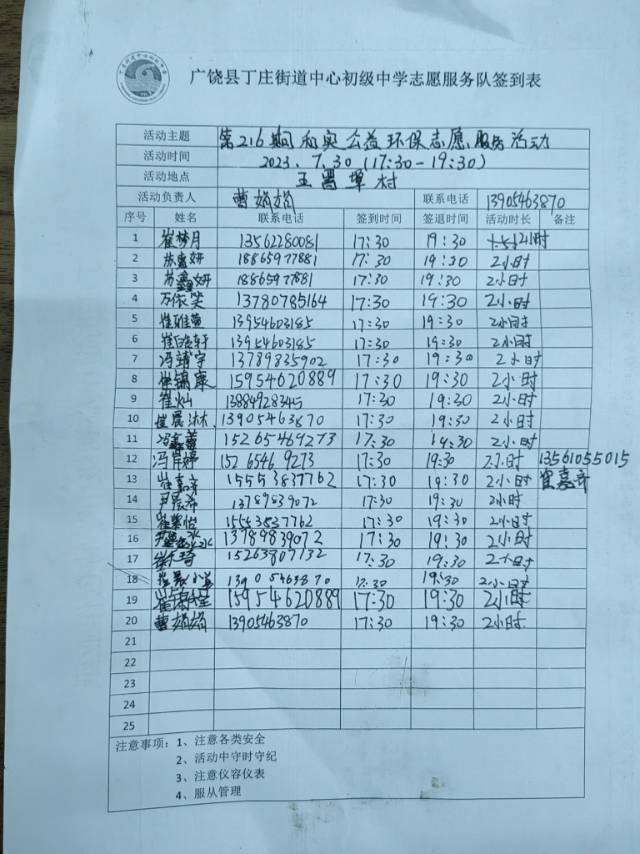 广饶县丁庄街道中心初级中学志愿服务队签到表
活动主题 第216期 和奕公益环保志愿服务活动
活动时间 2023.7.30(17:30-19:30)
活动地点 王署埠村
活动负责人 曹娟娟 联系电话 13905463870
序号 姓名 联系电话 签到时间 签退时间 活动时长 备注
1 崔梦月 13562280081 17:30 19:30 2小时
2 苏鑫妍 18865977881 17:30 19:30 2小时
3 苏鑫妍 18865977881 17:30 19:30 2小时
4 万依笑 13780785164 17:30 19:30 2小时
5 崔雅萱 13954603185 17:30 19:30 2小时
6 崔皓轩 13954603185 17:30 19:30 2小时
7 冯靖宇 13789835902 17:30 19:30 2小时
8 崔锦康 15954620889 17:30 19:30 2小时
9 崔灿 13884928345 17:30 19:30 2小时
10 崔晨沐 13905463870 17:30 19:30 2小时
11 冯鑫蕾 15265469273 17:30 19:30 2小时
12 冯肖婷 15265469273 17:30 19:30 2小时 13561055015
13 崔嘉奇 15553837762 17:30 19:30 2小时 崔嘉奇
14 尹辰希 13789839072 17:30 19:30 2小时
15 崔紫怡 15553837762 17:30 19:30 2小时
16 13789839072 17:30 19:30 2小时
17 15263807132 17:30 19:30 2小时
18 13905463870 17:30 19:30 2小时
19 15954620889 17:30 19:30 2小时
20 曹娟娟 13905463870 17:30 19:30 2小时
21
22
23
24
25
注意事项：1、注意各类安全
2、活动中守时守纪
3、注意仪容仪表
4、服从管理